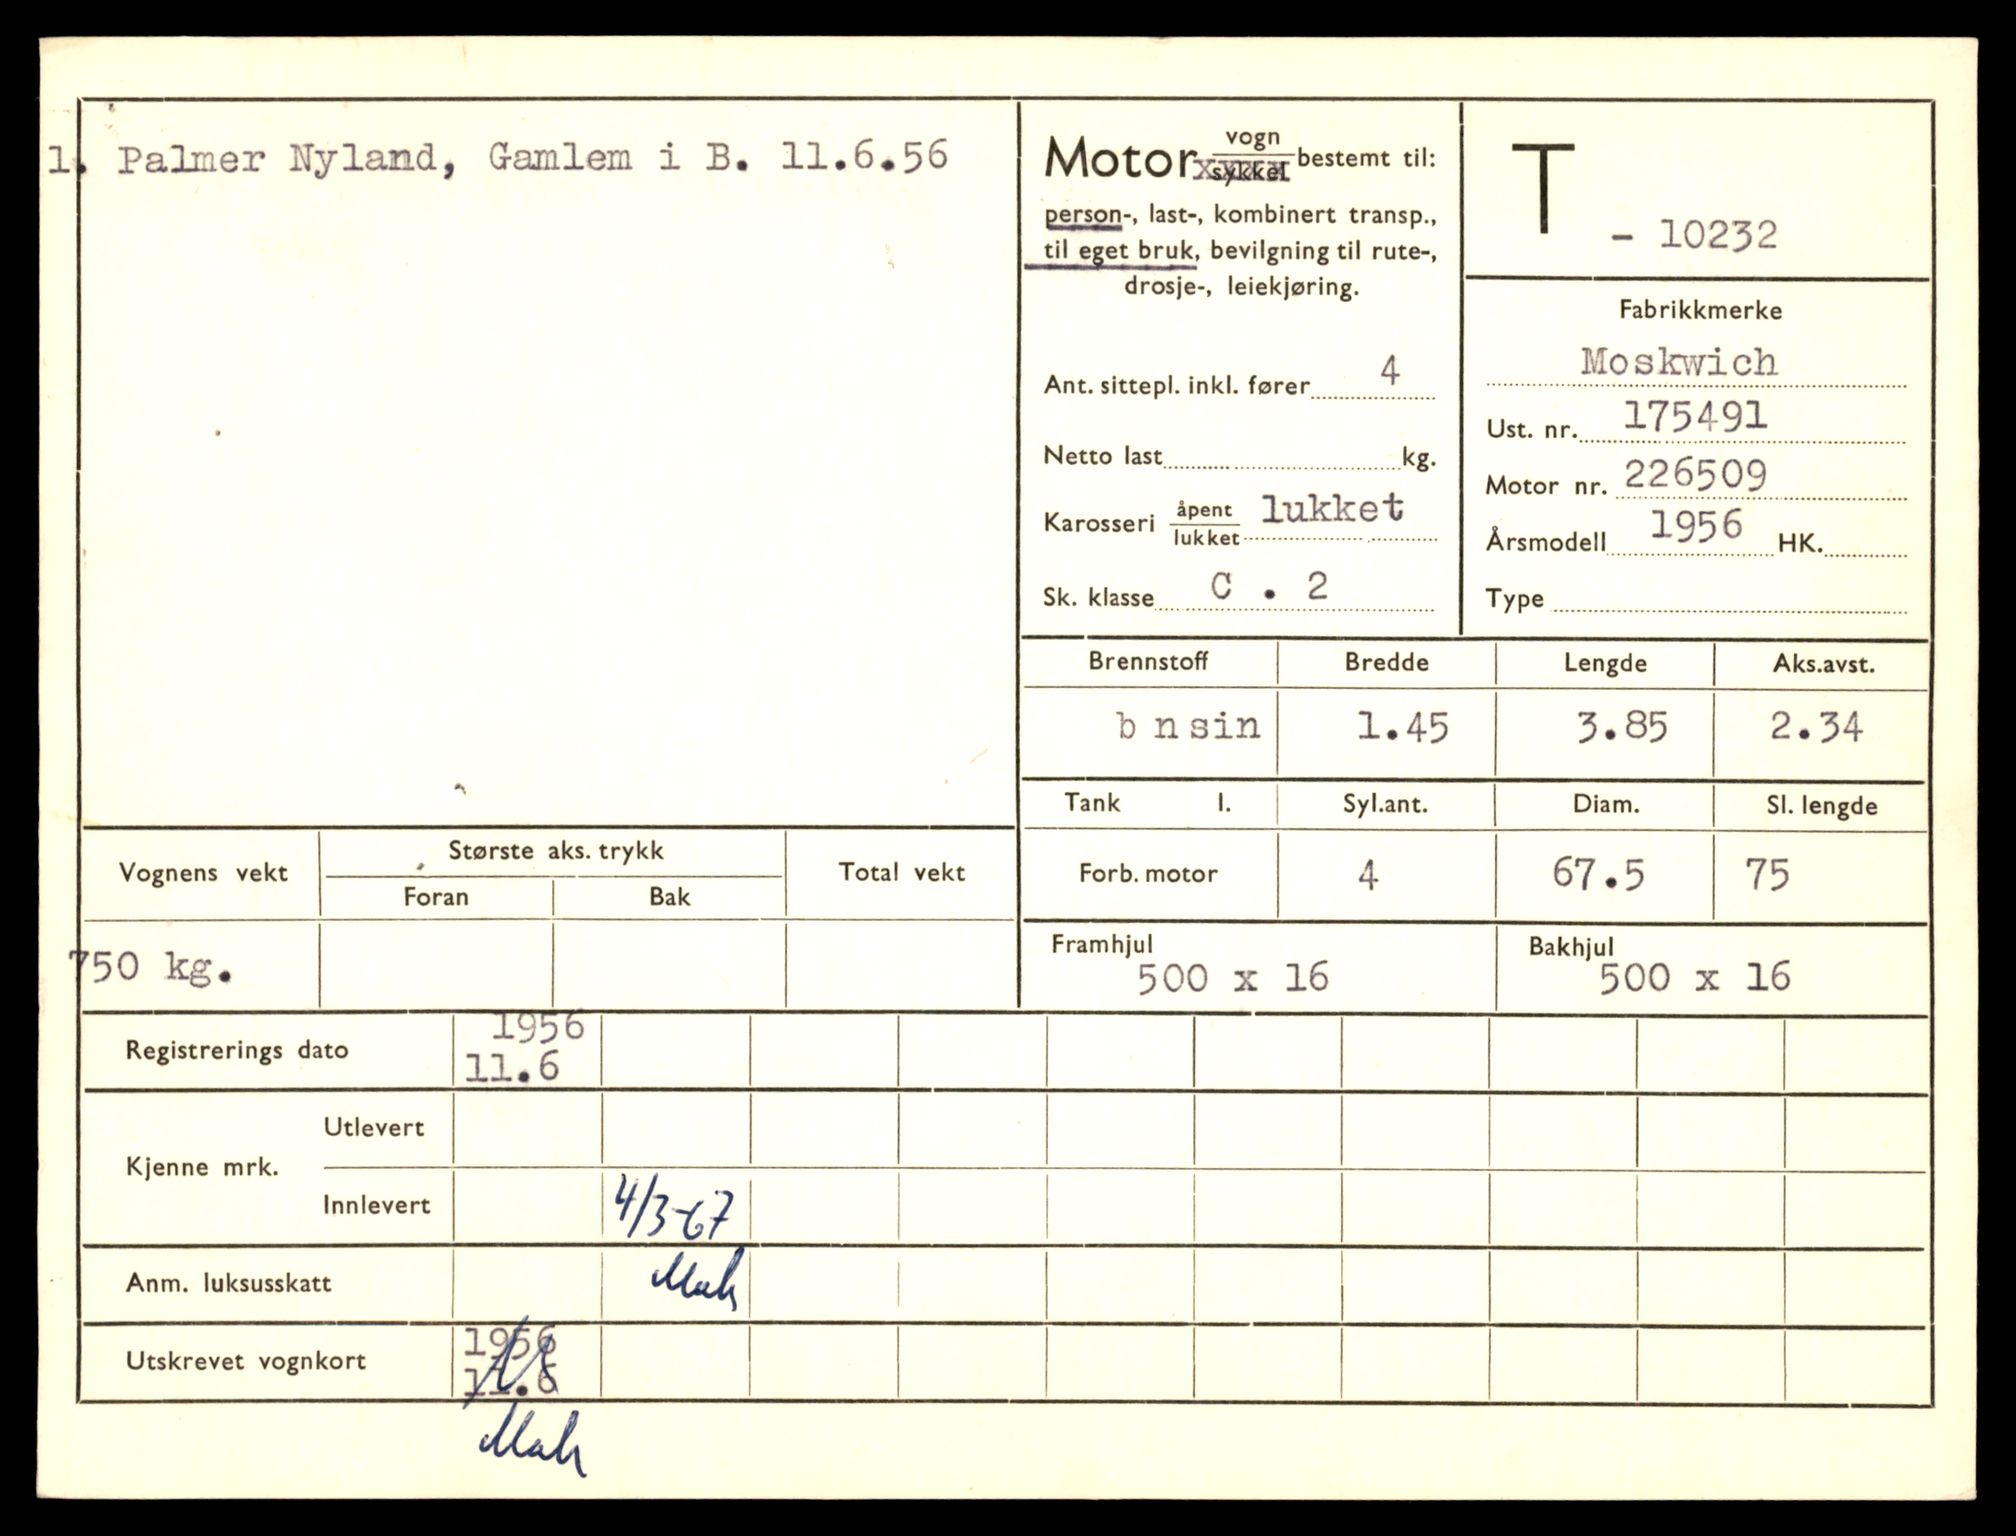 1. Palmer Nyland, Gamlem i B. 11.6.56
Motor vogn
sykkel bestemt til:
person-, last-, kombinert transp.,
til eget bruk, bevilgning til rute-,
drosje-, leiekjøring.
Ant. sittepl. inkl. fører 4
Netto last kg.
Karosseri åpent
lukket lukket
Sk. klasse C . 2
T - 10232
Fabrikkmerke
Moskwich
Ust. nr. 175491
Motor nr. 226509
Årsmodell 1956 HK.
Type
Brennstoff Bredde Lengde Aks.avst.
b nsin 1.45 3.85 2.34
Tank l. Syl.ant. Diam. Sl. lengde
Forb. motor 4 67.5 75
Framhjul Bakhjul
500 x 16 500 x 16
Vognens vekt Største aks. trykk Total vekt
Foran Bak
750 kg.
Registrerings dato 1956
11.6
Kjenne mrk. Utlevert
Innlevert 4/3-67
Anm. luksusskatt
Utskrevet vognkort 1956
11.6